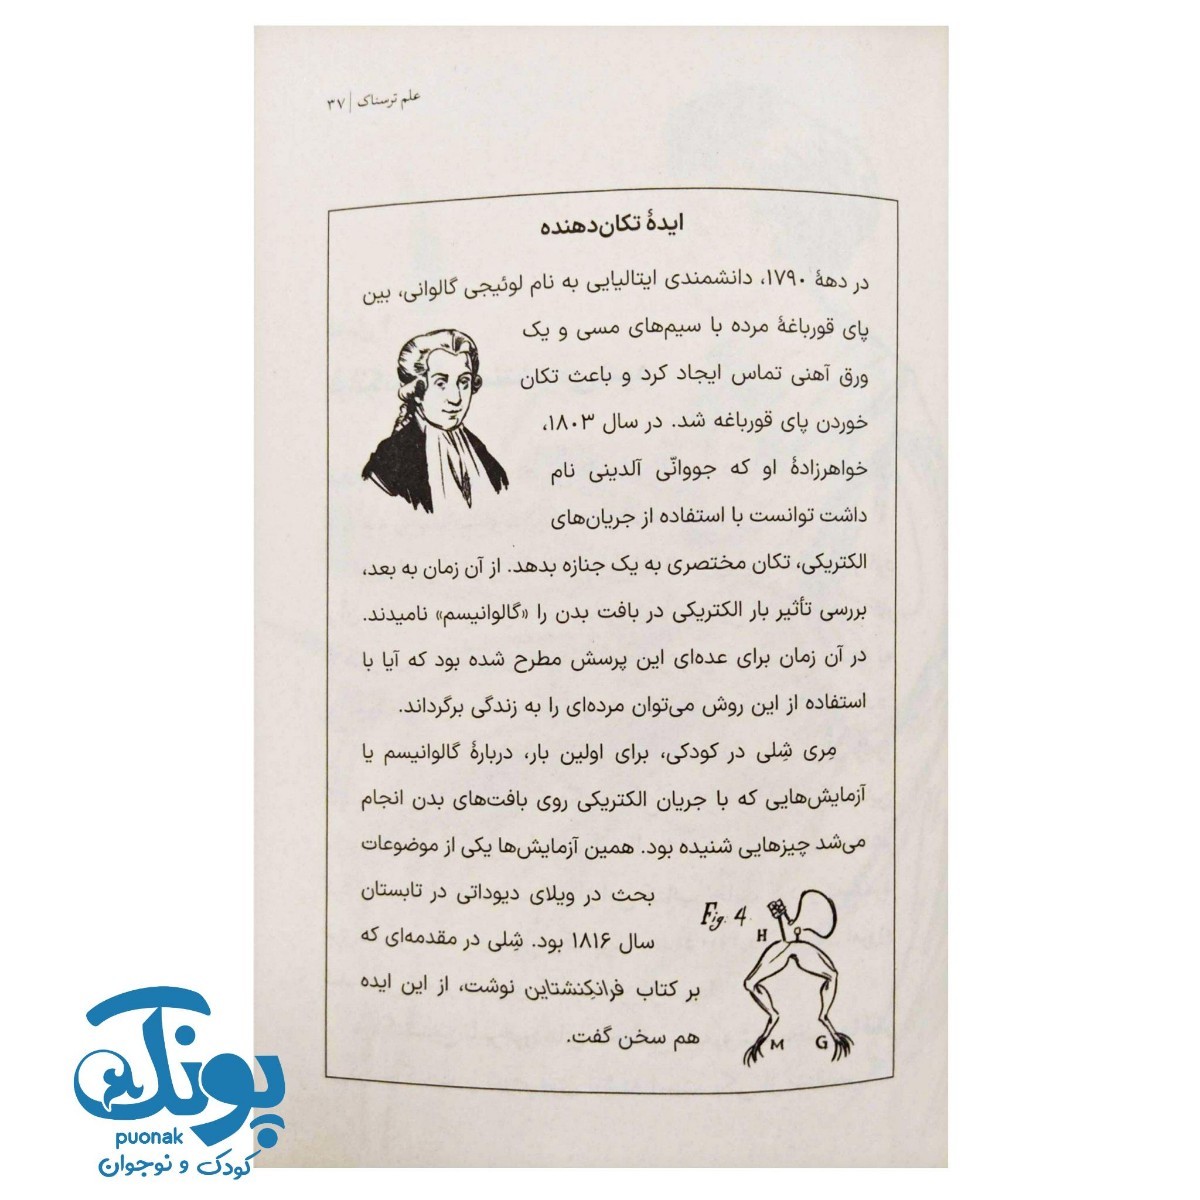 علم ترسناک | ۳۷
ایدهٔ تکان‌دهنده
در دههٔ ۱۷۹۰، دانشمندی ایتالیایی به نام لوئیجی گالوانی، بین
پای قورباغهٔ مرده با سیم‌های مسی و یک
ورق آهنی تماس ایجاد کرد و باعث تکان
خوردن پای قورباغه شد. در سال ۱۸۰۳،
خواهرزادهٔ او که جووانّی آلدینی نام
داشت توانست با استفاده از جریان‌های
الکتریکی، تکان مختصری به یک جنازه بدهد. از آن زمان به بعد،
بررسی تأثیر بار الکتریکی در بافت بدن را «گالوانیسم» نامیدند.
در آن زمان برای عده‌ای این پرسش مطرح شده بود که آیا با
استفاده از این روش می‌توان مرده‌ای را به زندگی برگرداند.
مِری شِلی در کودکی، برای اولین بار، دربارهٔ گالوانیسم یا
آزمایش‌هایی که با جریان الکتریکی روی بافت‌های بدن انجام
می‌شد چیزهایی شنیده بود. همین آزمایش‌ها یکی از موضوعات
بحث در ویلای دیوداتی در تابستان
سال ۱۸۱۶ بود. شِلی در مقدمه‌ای که
بر کتاب فرانکِنشتاین نوشت، از این ایده
هم سخن گفت.
Fig. 4.
H
M G
پونک
puonak
کودک و نوجوان